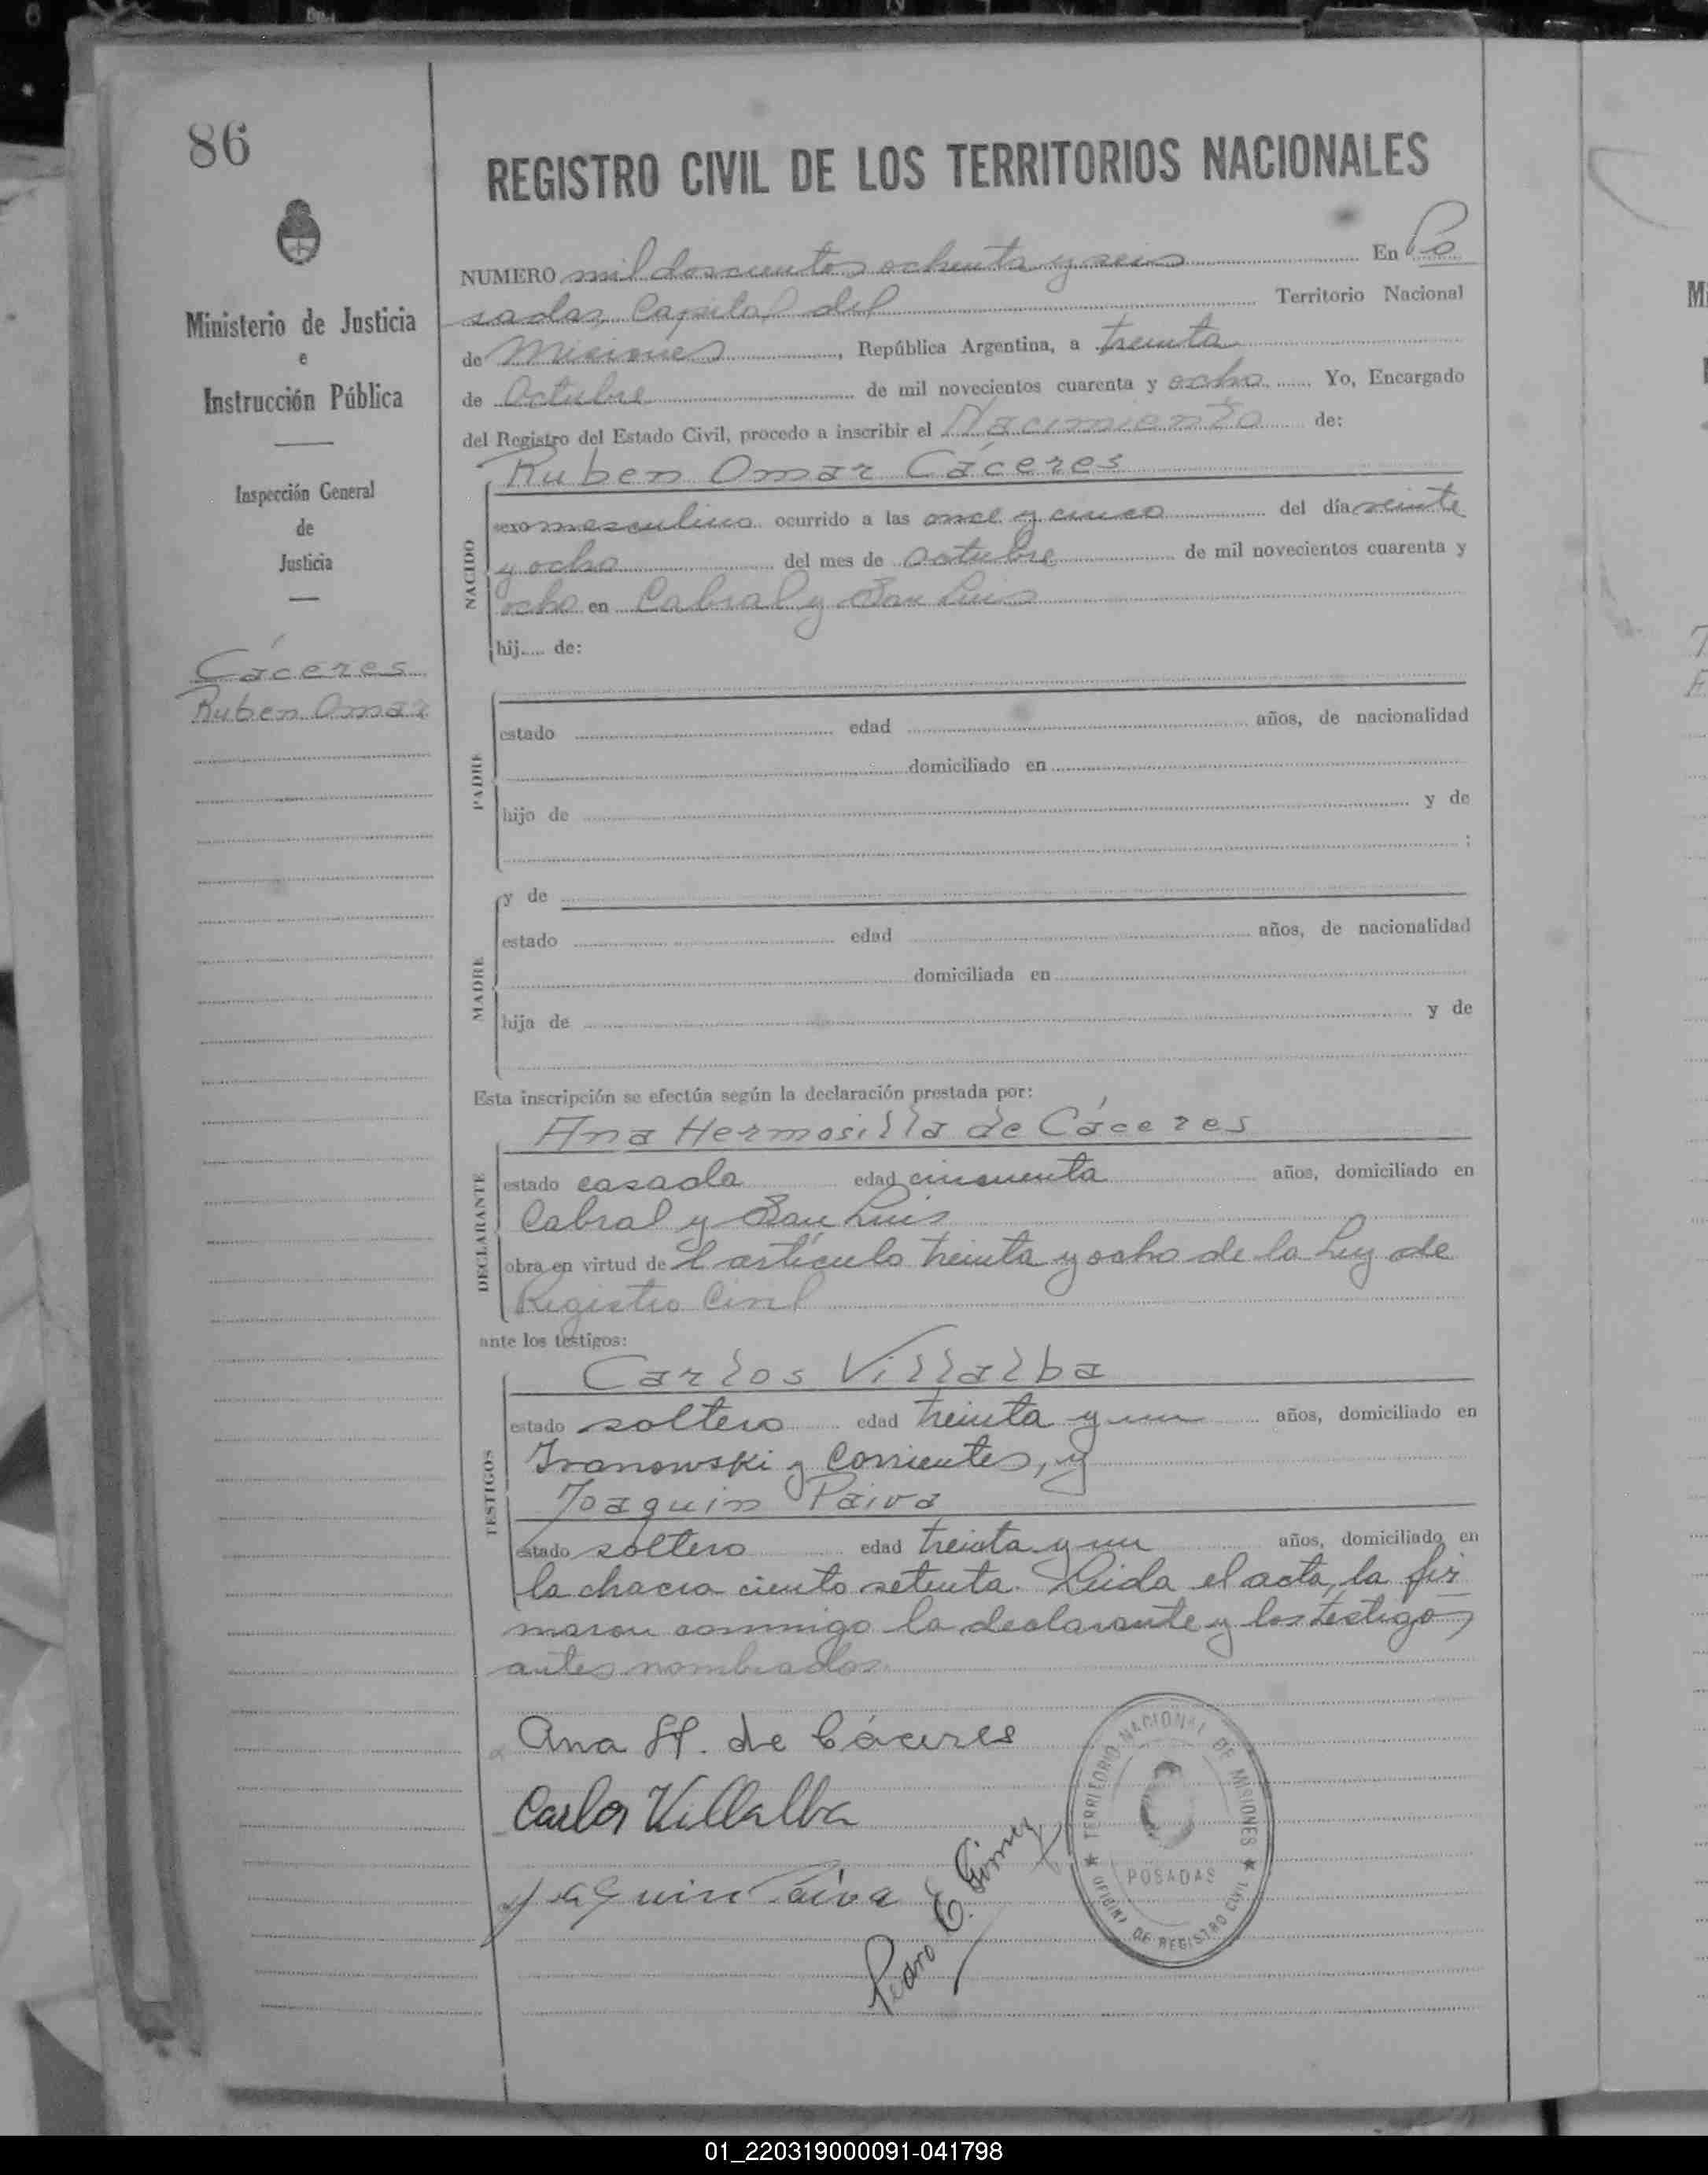 86
REGISTRO CIVIL DE LOS TERRITORIOS NACIONALES
Ministerio de Justicia
e
Instrucción Pública
Inspección General
de
Justicia
Cáceres
Ruben Omar
NUMERO mil doscientos ochenta y seis En Po
sadas, Capital del Territorio Nacional
de Misiones, República Argentina, a treinta
de Octubre de mil novecientos cuarenta y ocho Yo, Encargado
del Registro del Estado Civil, procedo a inscribir el Nacimiento de:
Ruben Omar Cáceres
NACIDO
sexo masculino ocurrido a las once y cinco del día veinte
y ocho del mes de octubre de mil novecientos cuarenta y
ocho en Cabral y San Luis
hij.... de:
PADRE
estado edad años, de nacionalidad
domiciliado en
hijo de y de
;
MADRE
y de
estado edad años, de nacionalidad
domiciliada en
hija de y de
Esta inscripción se efectúa según la declaración prestada por:
Ana Hermosilla de Cáceres
DECLARANTE
estado casada edad cincuenta años, domiciliado en
Cabral y San Luis
obra en virtud de l artículo treinta y ocho de la Ley de
Registro Civil
ante los testigos:
Carlos Villalba
TESTIGOS
estado soltero edad treinta y un años, domiciliado en
Ivanowski y Corrientes, y
Joaquin Paiva
estado soltero edad treinta y un años, domiciliado en
la chacra ciento setenta. Leida el acta, la fir
maron conmigo la declarante y los testigos
antes nombrados.
Ana H. de Cáceres
Carlos Villalba
Joaquin Paiva
Pedro E. Gimez
TERRITORIO NACIONAL DE MISIONES
POSADAS
OFICINA DE REGISTRO CIVIL
01_220319000091-041798